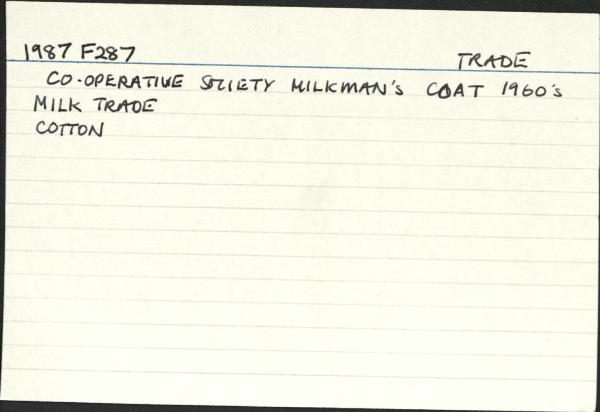 1987 F287 TRADE
CO-OPERATIVE SOCIETY MILKMAN'S COAT 1960's
MILK TRADE
COTTON